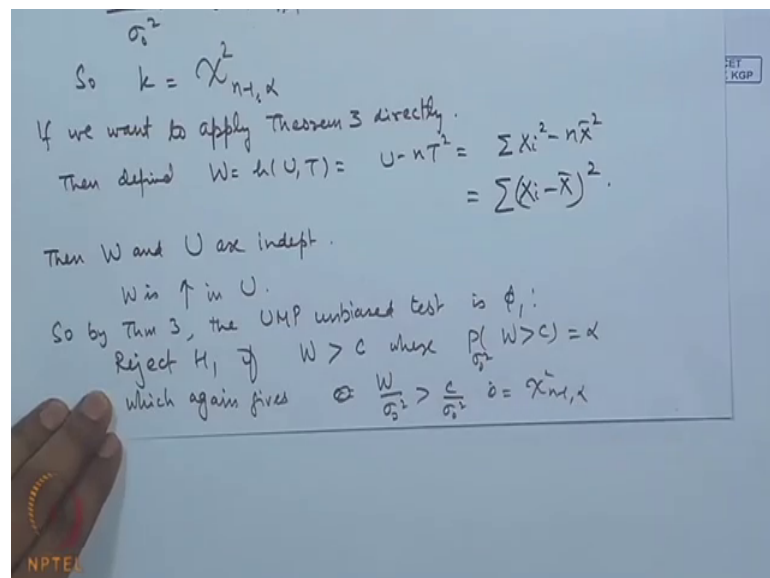 σ₀²
So k = χ²ₙ₋₁,α
If we want to apply Theorem 3 directly.
Then defined W = h(U,T) = U - nT² = Σ Xi² - n x̄²
= Σ(Xi - X̄)².
Then W and U are indept.
W is ↑ in U.
So by Thm 3, the UMP unbiased test is ϕ₁:
Reject H₁ if W > c where P_σ₀² (W > c) = α
which again gives W/σ₀² > c/σ₀² = χ²ₙ₋₁,α
CET
KGP
NPTEL